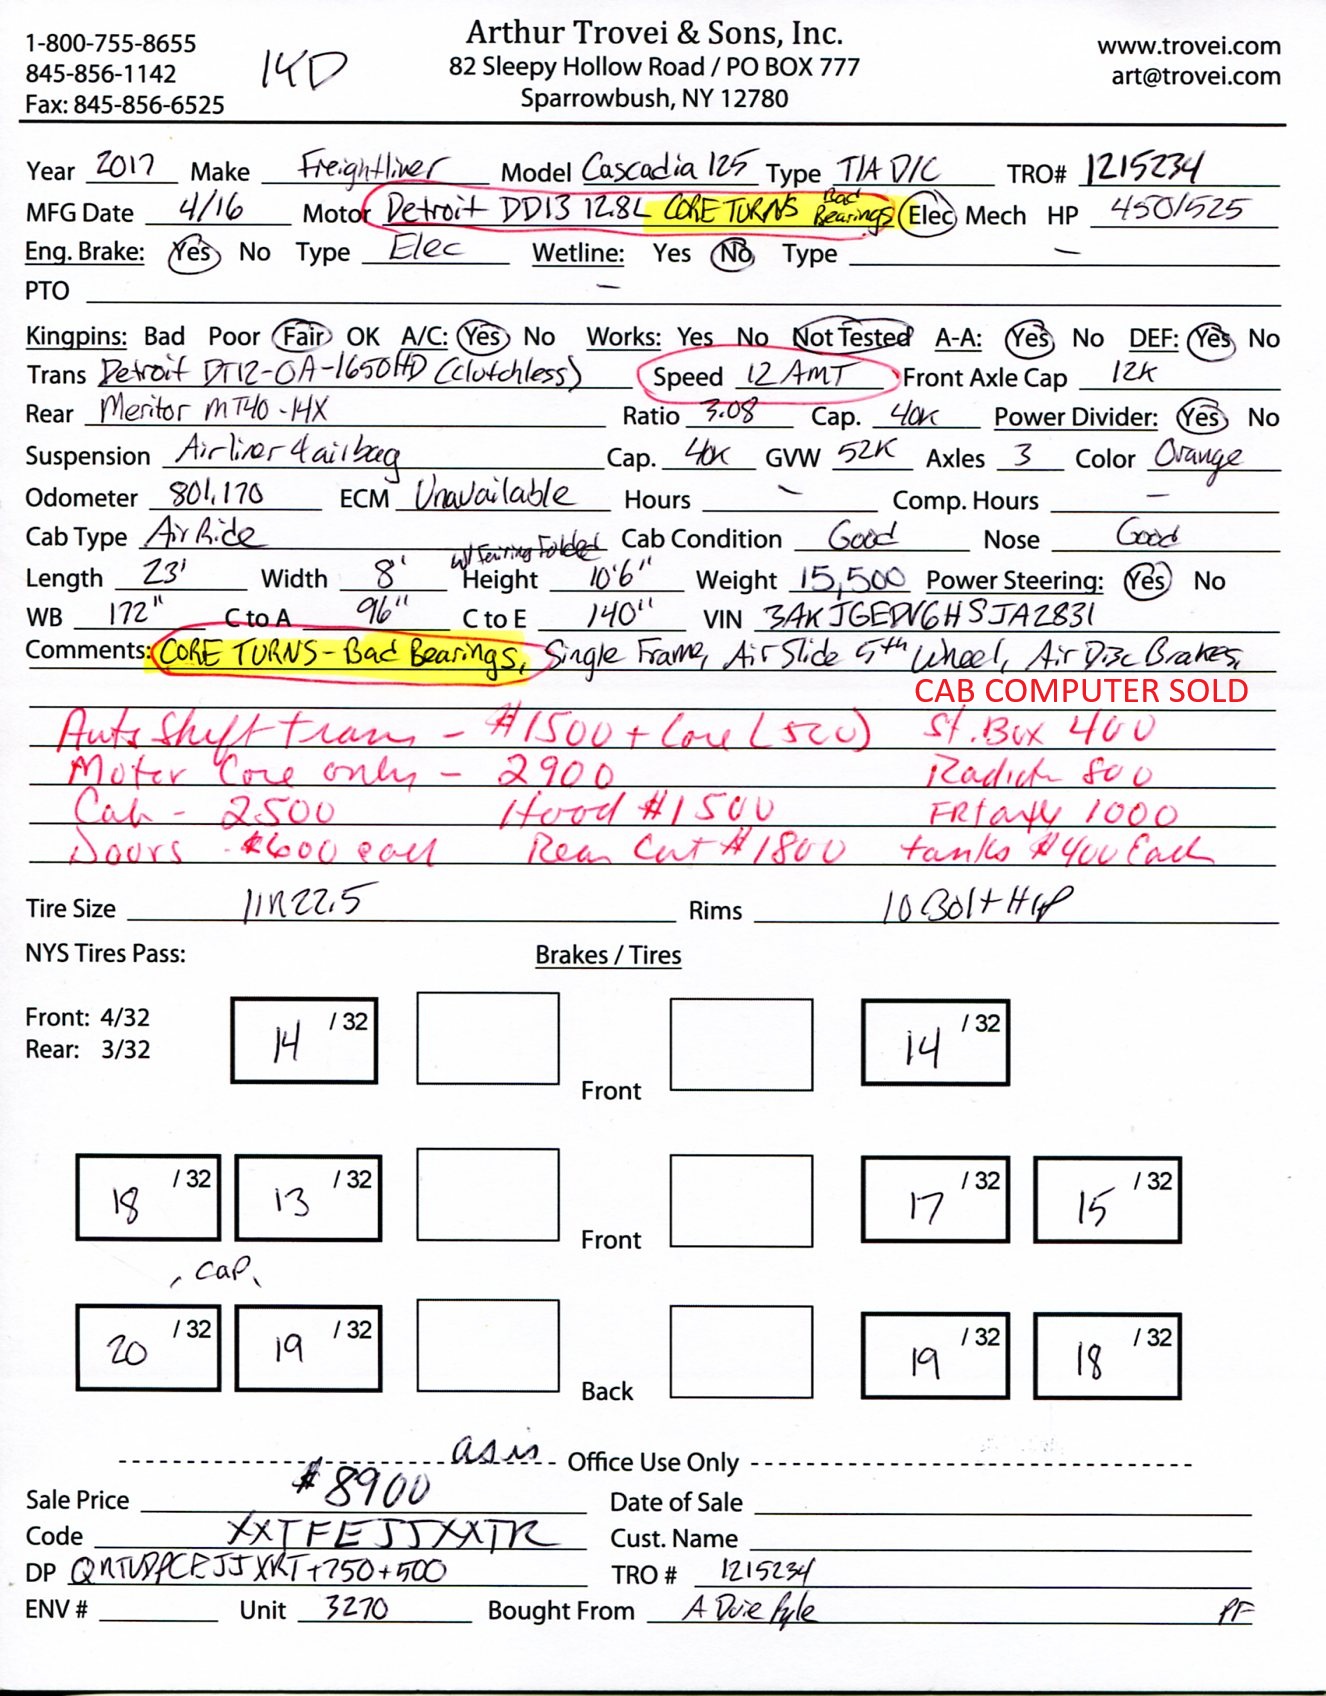 Arthur Trovei & Sons, Inc.
1-800-755-8655 82 Sleepy Hollow Road / PO BOX 777 www.trovei.com
845-856-1142 14D Sparrowbush, NY 12780 art@trovei.com
Fax: 845-856-6525
Year 2017 Make Freightliner Model Cascadia 125 Type T/A D/C TRO# 1215234
MFG Date 4/16 Motor Detroit DD13 12.8L CORE TURNS Bad Bearings Elec Mech HP 450/525
Eng. Brake: Yes No Type Elec Wetline: Yes No Type —
PTO —
Kingpins: Bad Poor Fair OK A/C: Yes No Works: Yes No Not Tested A-A: Yes No DEF: Yes No
Trans Detroit DT12-OA-1650HD (Clutchless) Speed 12 AMT Front Axle Cap 12K
Rear Meritor MT40-14X Ratio 3.08 Cap. 40K Power Divider: Yes No
Suspension Airliner 4 airbag Cap. 40K GVW 52K Axles 3 Color Orange
Odometer 801,170 ECM Unavailable Hours — Comp. Hours —
Cab Type Air Ride Cab Condition Good Nose Good
w/ Fairing Folded
Length 23' Width 8' Height 10'6" Weight 15,500 Power Steering: Yes No
WB 172" C to A 96" C to E 140" VIN 3AKJGEDV6HSJA2831
Comments: CORE TURNS - Bad Bearings, Single Frame, Air Slide 5th Wheel, Air Disc Brakes,
CAB COMPUTER SOLD
Auto Shift trans - $1500 + Core (500) St. Box 400
Motor Core only - 2900 800
Cab - 2500 Hood $1500 1000
Doors - $600 each Rear Cut $1800 tanks $400 Each
Tire Size 11R22.5 Rims 10 Bolt HP
NYS Tires Pass: Brakes / Tires
Front: 4/32 14 /32 14 /32
Rear: 3/32
Front
18 /32 13 /32 17 /32 15 /32
Front
cap
20 /32 19 /32 19 /32 18 /32
Back
as is Office Use Only
Sale Price $8900 Date of Sale
Code XXTFEJJXXTR Cust. Name
DP +750+500 TRO # 1215234
ENV # Unit 3270 Bought From A Duie Pyle PF